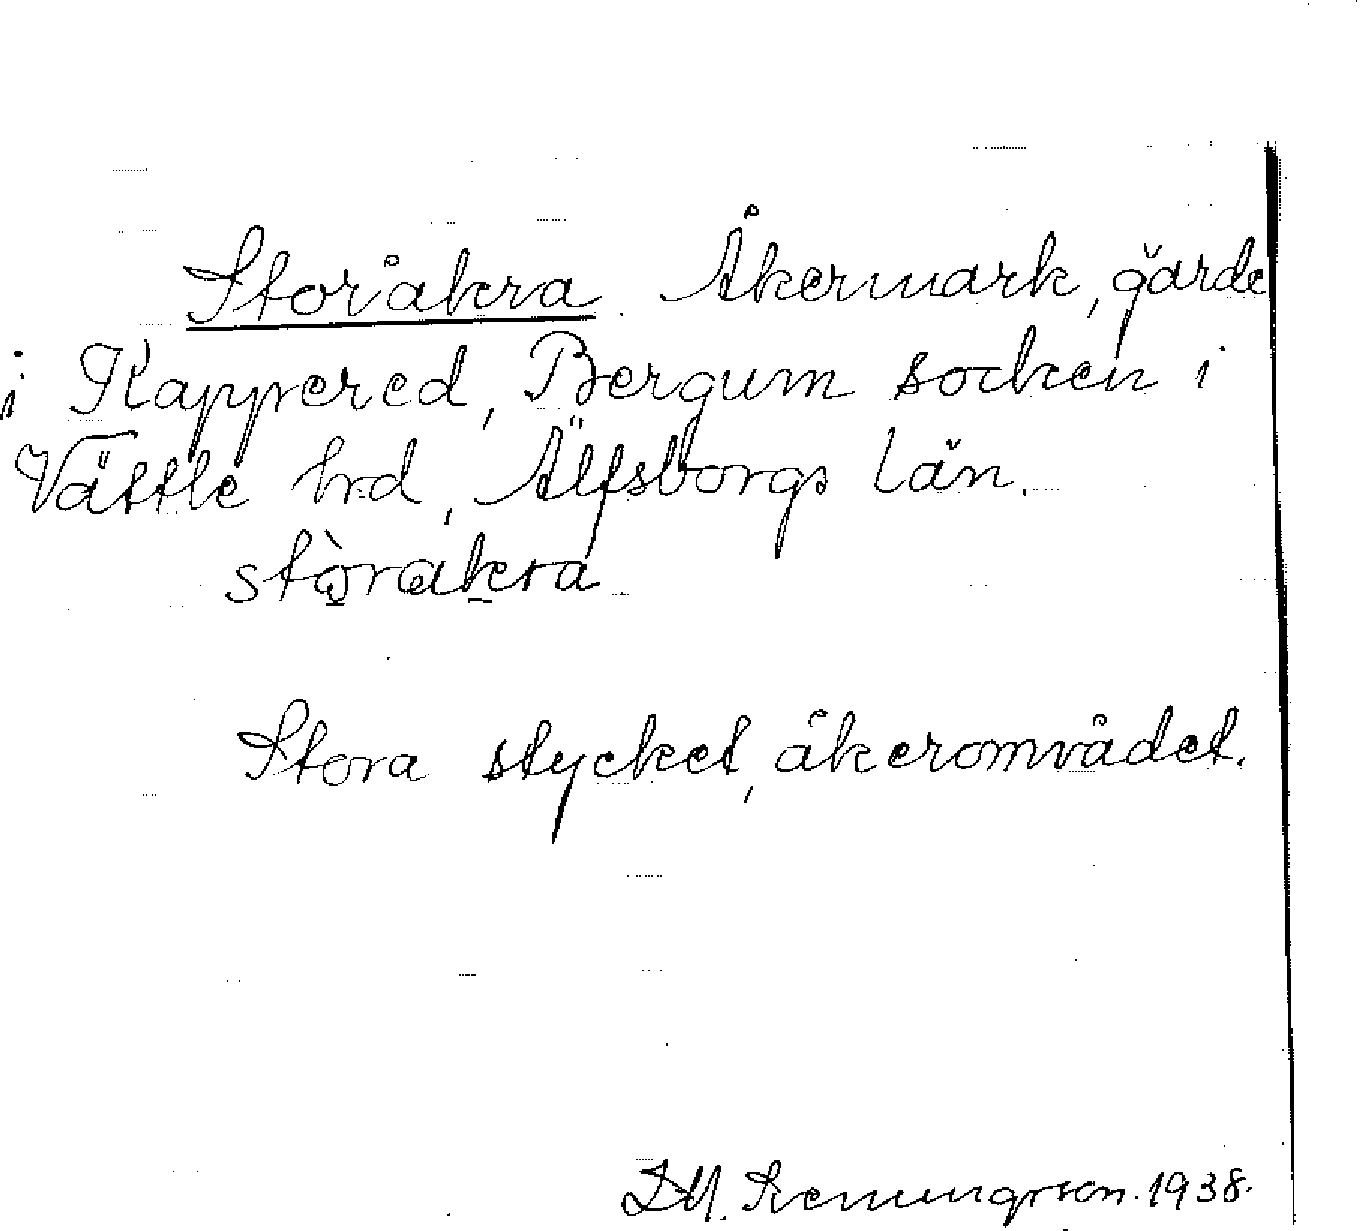 Storåkra. Åkermark, gärde
i Kappered, Bergum socken i
Vättle hd, Älfsborgs län.
stòrakra
Stora stycket, åkerområdet.
1938.